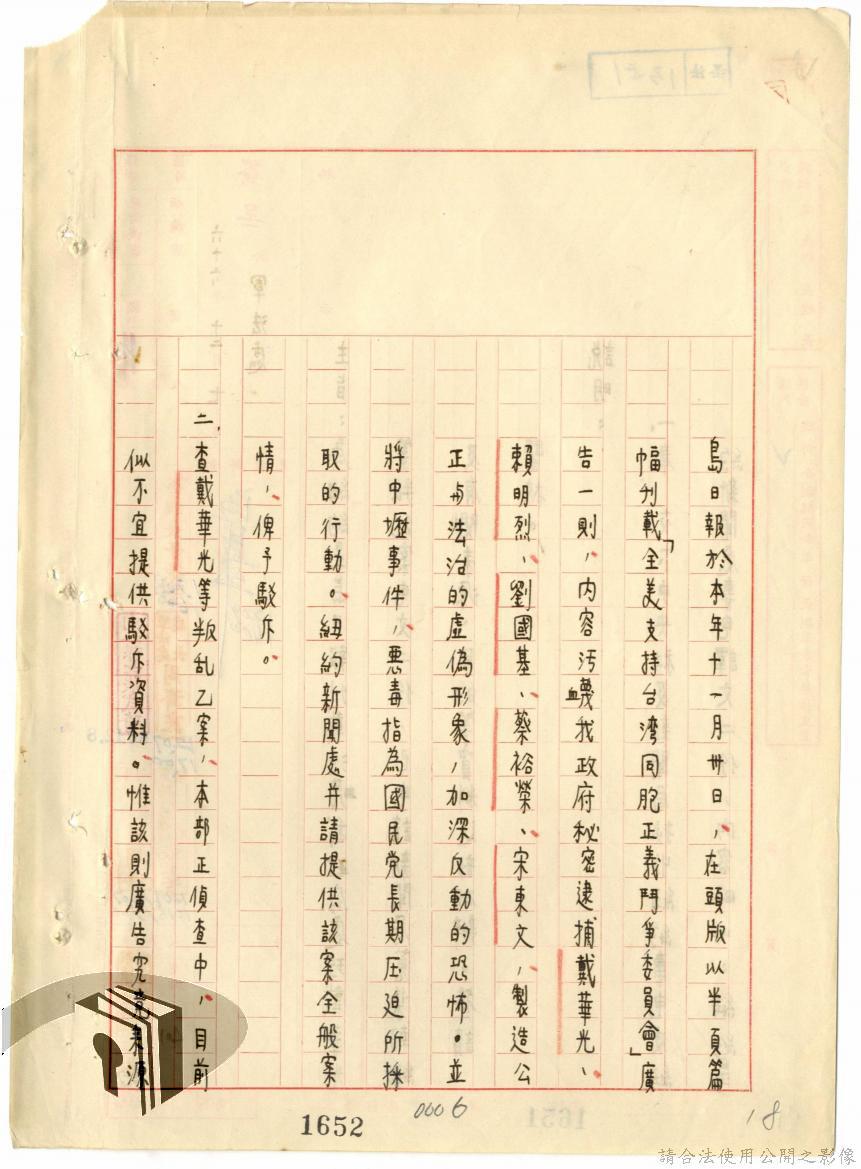 島日報於本年十一月卅日，在頭版以半頁篇
幅刋載「全美支持台湾同胞正義鬥爭委員會」廣
告一則，內容汚衊我政府秘密逮捕戴華光、
賴明烈、劉國基、蔡裕榮、宋東文，製造公
正与法治的虛偽形象，加深反動的恐怖。並
將中壢事件，惡毒指為國民党長期压迫所採
取的行動。紐約新聞處并請提供該案全般案
情，俾予駁斥。
二、查戴華光等叛乱乙案，本部正偵查中，目前
似不宜提供駁斥資料。惟該則廣告究竟來源
1652
0006
18
請合法使用公開之影像